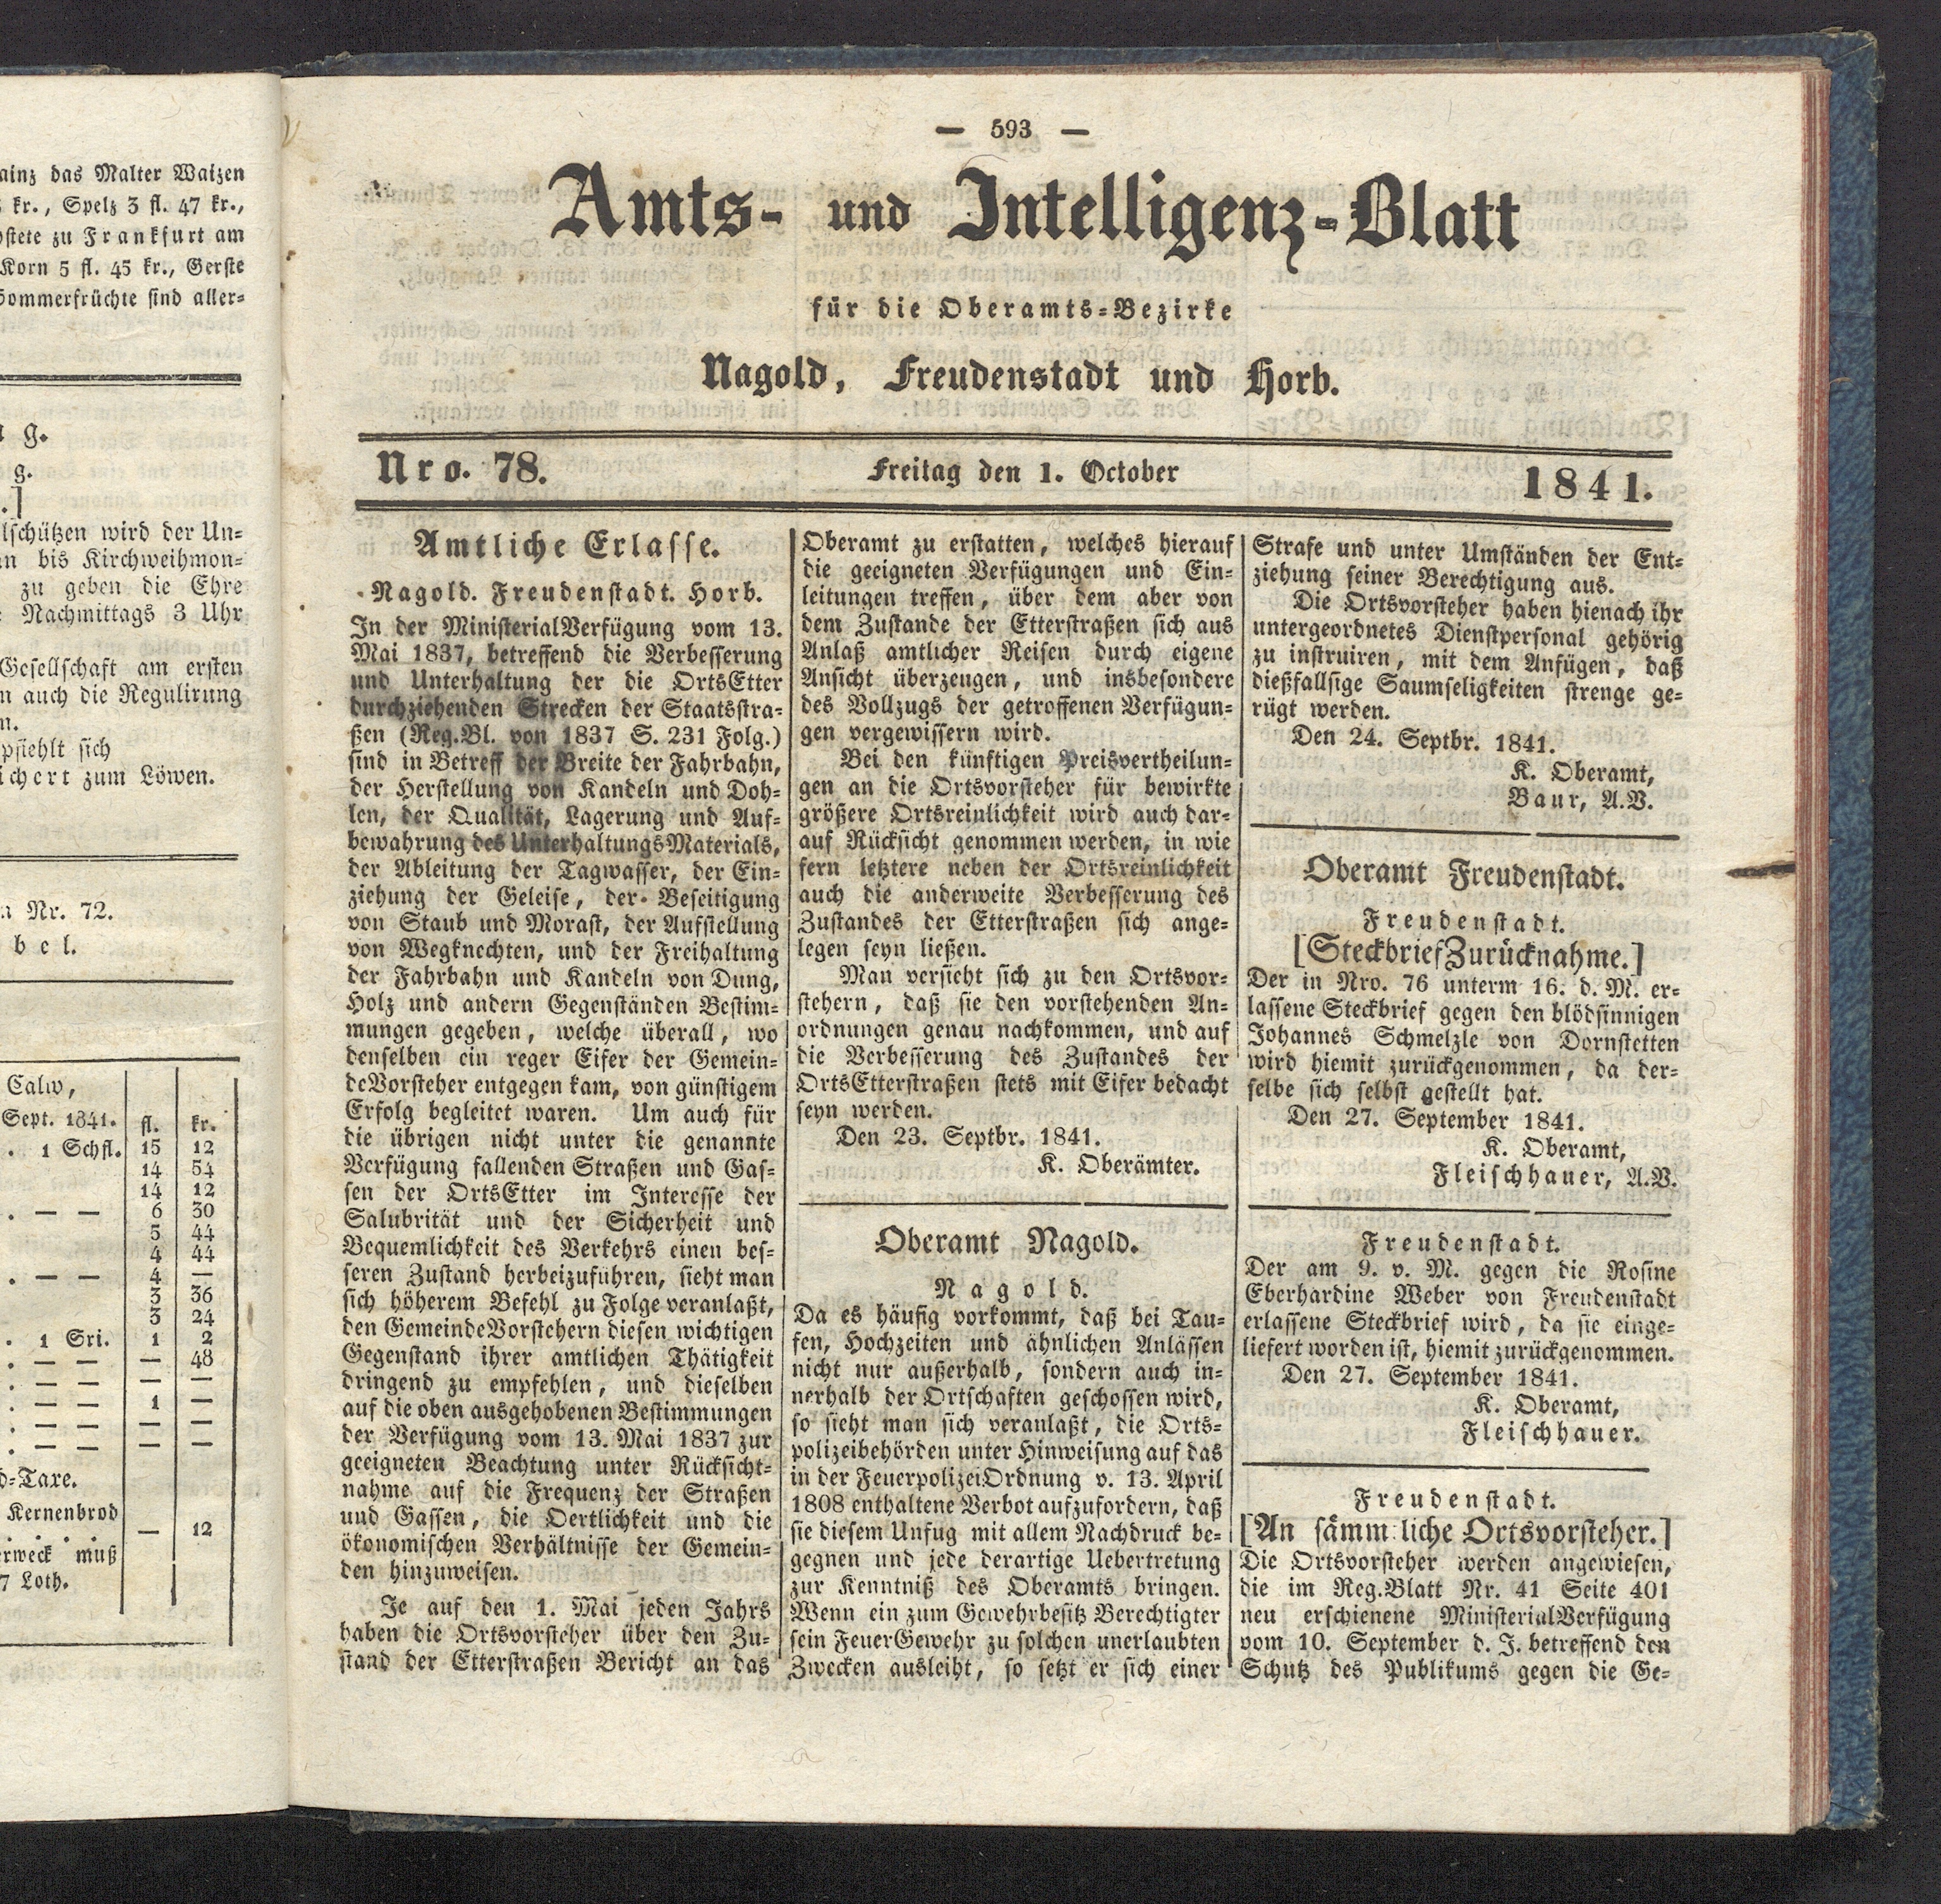 ainz das Malter Waizen
kr., Spelz 3 fl. 47 kr.,
stete zu Frankfurt am
Korn 5 fl. 45 kr., Gerste
Sommerfrüchte sind aller-
g.
g.
.]
lschützen wird der Un-
n bis Kirchweihmon-
zu geben die Ehre
Nachmittags 3 Uhr
Gesellschaft am ersten
n auch die Regulirung
n.
pfiehlt sich
ichert zum Löwen.
Nr. 72.
bel.
Calw,
Sept. 1841. fl. kr.
. 1 Schfl. 15 12
14 54
14 12
. — — 6 30
5 44
4 44
. — — 4 —
3 36
3 24
. 1 Sri. 1 2
. — — — 48
. — — — —
. — — 1 —
. — — — —
. — — — —
d-Taxe.
Kernenbrod
. . . — 12
rweck muß
7 Loth.
— 593 —
Amts- und Intelligenz-Blatt
für die Oberamts-Bezirke
Nagold, Freudenstadt und Horb.
Nro. 78. Freitag den 1. October 1841.
Amtliche Erlasse.
Nagold. Freudenstadt. Horb.
In der MinisterialVerfügung vom 13.
Mai 1837, betreffend die Verbesserung
und Unterhaltung der die OrtsEtter
durchziehenden Strecken der Staatsstra-
ßen (Reg.Bl. von 1837 S. 231 Folg.)
sind in Betreff der Breite der Fahrbahn,
der Herstellung von Kandeln und Doh-
len, der Qualität, Lagerung und Auf-
bewahrung des UnterhaltungsMaterials,
der Ableitung der Tagwasser, der Ein-
ziehung der Geleise, der Beseitigung
von Staub und Morast, der Aufstellung
von Wegknechten, und der Freihaltung
der Fahrbahn und Kandeln von Dung,
Holz und andern Gegenständen Bestim-
mungen gegeben, welche überall, wo
denselben ein reger Eifer der Gemein-
deVorsteher entgegen kam, von günstigem
Erfolg begleitet waren. Um auch für
die übrigen nicht unter die genannte
Verfügung fallenden Straßen und Gas-
sen der OrtsEtter im Interesse der
Salubrität und der Sicherheit und
Bequemlichkeit des Verkehrs einen bes-
seren Zustand herbeizuführen, sieht man
sich höherem Befehl zu Folge veranlaßt,
den GemeindeVorstehern diesen wichtigen
Gegenstand ihrer amtlichen Thätigkeit
dringend zu empfehlen, und dieselben
auf die oben ausgehobenen Bestimmungen
der Verfügung vom 13. Mai 1837 zur
geeigneten Beachtung unter Rücksicht-
nahme auf die Frequenz der Straßen
und Gassen, die Oertlichkeit und die
ökonomischen Verhältnisse der Gemein-
den hinzuweisen.
Je auf den 1. Mai jeden Jahrs
haben die Ortsvorsteher über den Zu-
stand der Etterstraßen Bericht an das
Oberamt zu erstatten, welches hierauf
die geeigneten Verfügungen und Ein-
leitungen treffen, über dem aber von
dem Zustande der Etterstraßen sich aus
Anlaß amtlicher Reisen durch eigene
Ansicht überzeugen, und insbesondere
des Vollzugs der getroffenen Verfügun-
gen vergewissern wird.
Bei den künftigen Preisvertheilun-
gen an die Ortsvorsteher für bewirkte
größere Ortsreinlichkeit wird auch dar-
auf Rücksicht genommen werden, in wie
fern letztere neben der Ortsreinlichkeit
auch die anderweite Verbesserung des
Zustandes der Etterstraßen sich ange-
legen seyn ließen.
Man versieht sich zu den Ortsvor-
stehern, daß sie den vorstehenden An-
ordnungen genau nachkommen, und auf
die Verbesserung des Zustandes der
OrtsEtterstraßen stets mit Eifer bedacht
seyn werden.
Den 23. Septbr. 1841.
K. Oberämter.
Oberamt Nagold.
Nagold.
Da es häufig vorkommt, daß bei Tau-
fen, Hochzeiten und ähnlichen Anlässen
nicht nur außerhalb, sondern auch in-
nerhalb der Ortschaften geschossen wird,
so sieht man sich veranlaßt, die Orts-
polizeibehörden unter Hinweisung auf das
in der FeuerpolizeiOrdnung v. 13. April
1808 enthaltene Verbot aufzufordern, daß
sie diesem Unfug mit allem Nachdruck be-
gegnen und jede derartige Uebertretung
zur Kenntniß des Oberamts bringen.
Wenn ein zum Gewehrbesitz Berechtigter
sein FeuerGewehr zu solchen unerlaubten
Zwecken ausleiht, so setzt er sich einer
Strafe und unter Umständen der Ent-
ziehung seiner Berechtigung aus.
Die Ortsvorsteher haben hienach ihr
untergeordnetes Dienstpersonal gehörig
zu instruiren, mit dem Anfügen, daß
dießfallsige Saumseligkeiten strenge ge-
rügt werden.
Den 24. Septbr. 1841.
K. Oberamt,
Baur, A.V.
Oberamt Freudenstadt.
Freudenstadt.
[SteckbriefZurücknahme.]
Der in Nro. 76 unterm 16. d. M. er-
lassene Steckbrief gegen den blödsinnigen
Johannes Schmelzle von Dornstetten
wird hiemit zurückgenommen, da der-
selbe sich selbst gestellt hat.
Den 27. September 1841.
K. Oberamt,
Fleischhauer, A.V.
Freudenstadt.
Der am 9. v. M. gegen die Rosine
Eberhardine Weber von Freudenstadt
erlassene Steckbrief wird, da sie einge-
liefert worden ist, hiemit zurückgenommen.
Den 27. September 1841.
K. Oberamt,
Fleischhauer.
Freudenstadt.
[An sämmtliche Ortsvorsteher.]
Die Ortsvorsteher werden angewiesen,
die im Reg.Blatt Nr. 41 Seite 401
neu erschienene MinisterialVerfügung
vom 10. September d. J. betreffend den
Schutz des Publikums gegen die Ge-